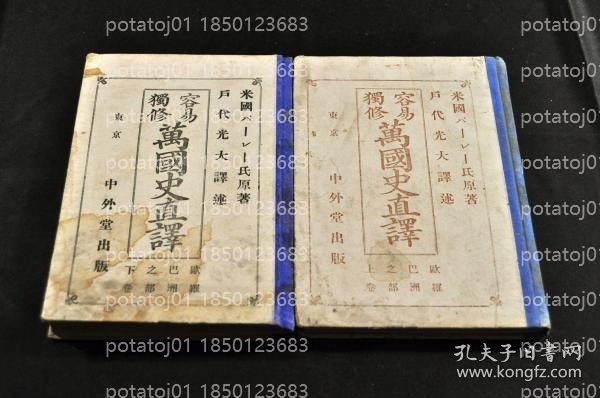 米國パーレー氏原著
戸代光大譯述
容易
獨修
萬國史直譯
歐羅
巴洲
之部
上卷
東京
中外堂出版
米國パーレー氏原著
戸代光大譯述
容易
獨修
萬國史直譯
歐羅
巴洲
之部
下卷
東京
中外堂出版
potatoj01 1850123683 potatoj01 1850123683
potatoj01 1850123683 potatoj01 1850123683
potatoj01 1850123683 potatoj01 1850123683
potatoj01 1850123683 potatoj01 1850123683
potatoj01 1850123683 potatoj01 1850123683
孔夫子旧书网
www.kongfz.com